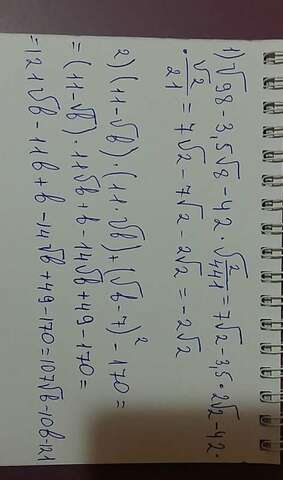 1) √98 - 3,5√8 - 42 · √(2/441) = 7√2 - 3,5 · 2√2 - 42 ·
· √2/21 = 7√2 - 7√2 - 2√2 = -2√2
2) (11 - √b) · (11 · √b) + (√b - 7)² - 170 =
= (11 - √b) · 11√b + b - 14√b + 49 - 170 =
= 121√b - 11b + b - 14√b + 49 - 170 = 107√b - 10b - 121